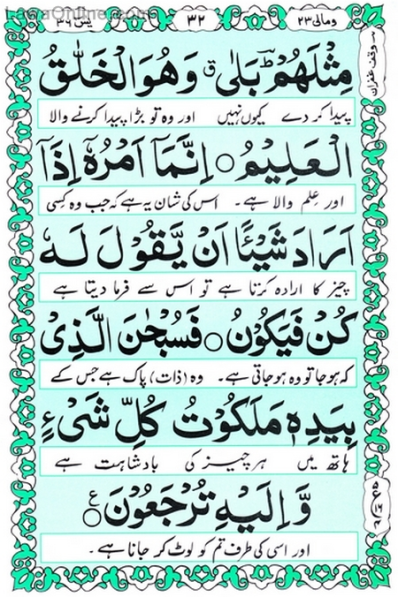 وما لی ۲۳ ۳۲ یٰسٓ ۳۶
وقف غفران
مِثْلَهُمْ ؕ بَلٰی ۗ وَهُوَ الْخَلّٰقُ
پیدا کر دے کیوں نہیں اور وہ تو بڑا پیدا کرنے والا
الْعَلِیْمُ ○ اِنَّمَاۤ اَمْرُهٗۤ اِذَاۤ
اور علم والا ہے۔ اس کی شان یہ ہے کہ جب وہ کسی
اَرَادَ شَیْـًٔا اَنْ یَّقُوْلَ لَهٗ
چیز کا ارادہ کرتا ہے تو اس سے فرما دیتا ہے
كُنْ فَیَكُوْنُ ○ فَسُبْحٰنَ الَّذِیْ
کہ ہو جا تو وہ ہو جاتی ہے۔ وہ (ذات) پاک ہے جس کے
بِیَدِهٖ مَلَكُوْتُ كُلِّ شَیْءٍ
ہاتھ میں ہر چیز کی بادشاہت ہے
وَّاِلَیْهِ تُرْجَعُوْنَ ○ ع
اور اسی کی طرف تم کو لوٹ کر جانا ہے۔